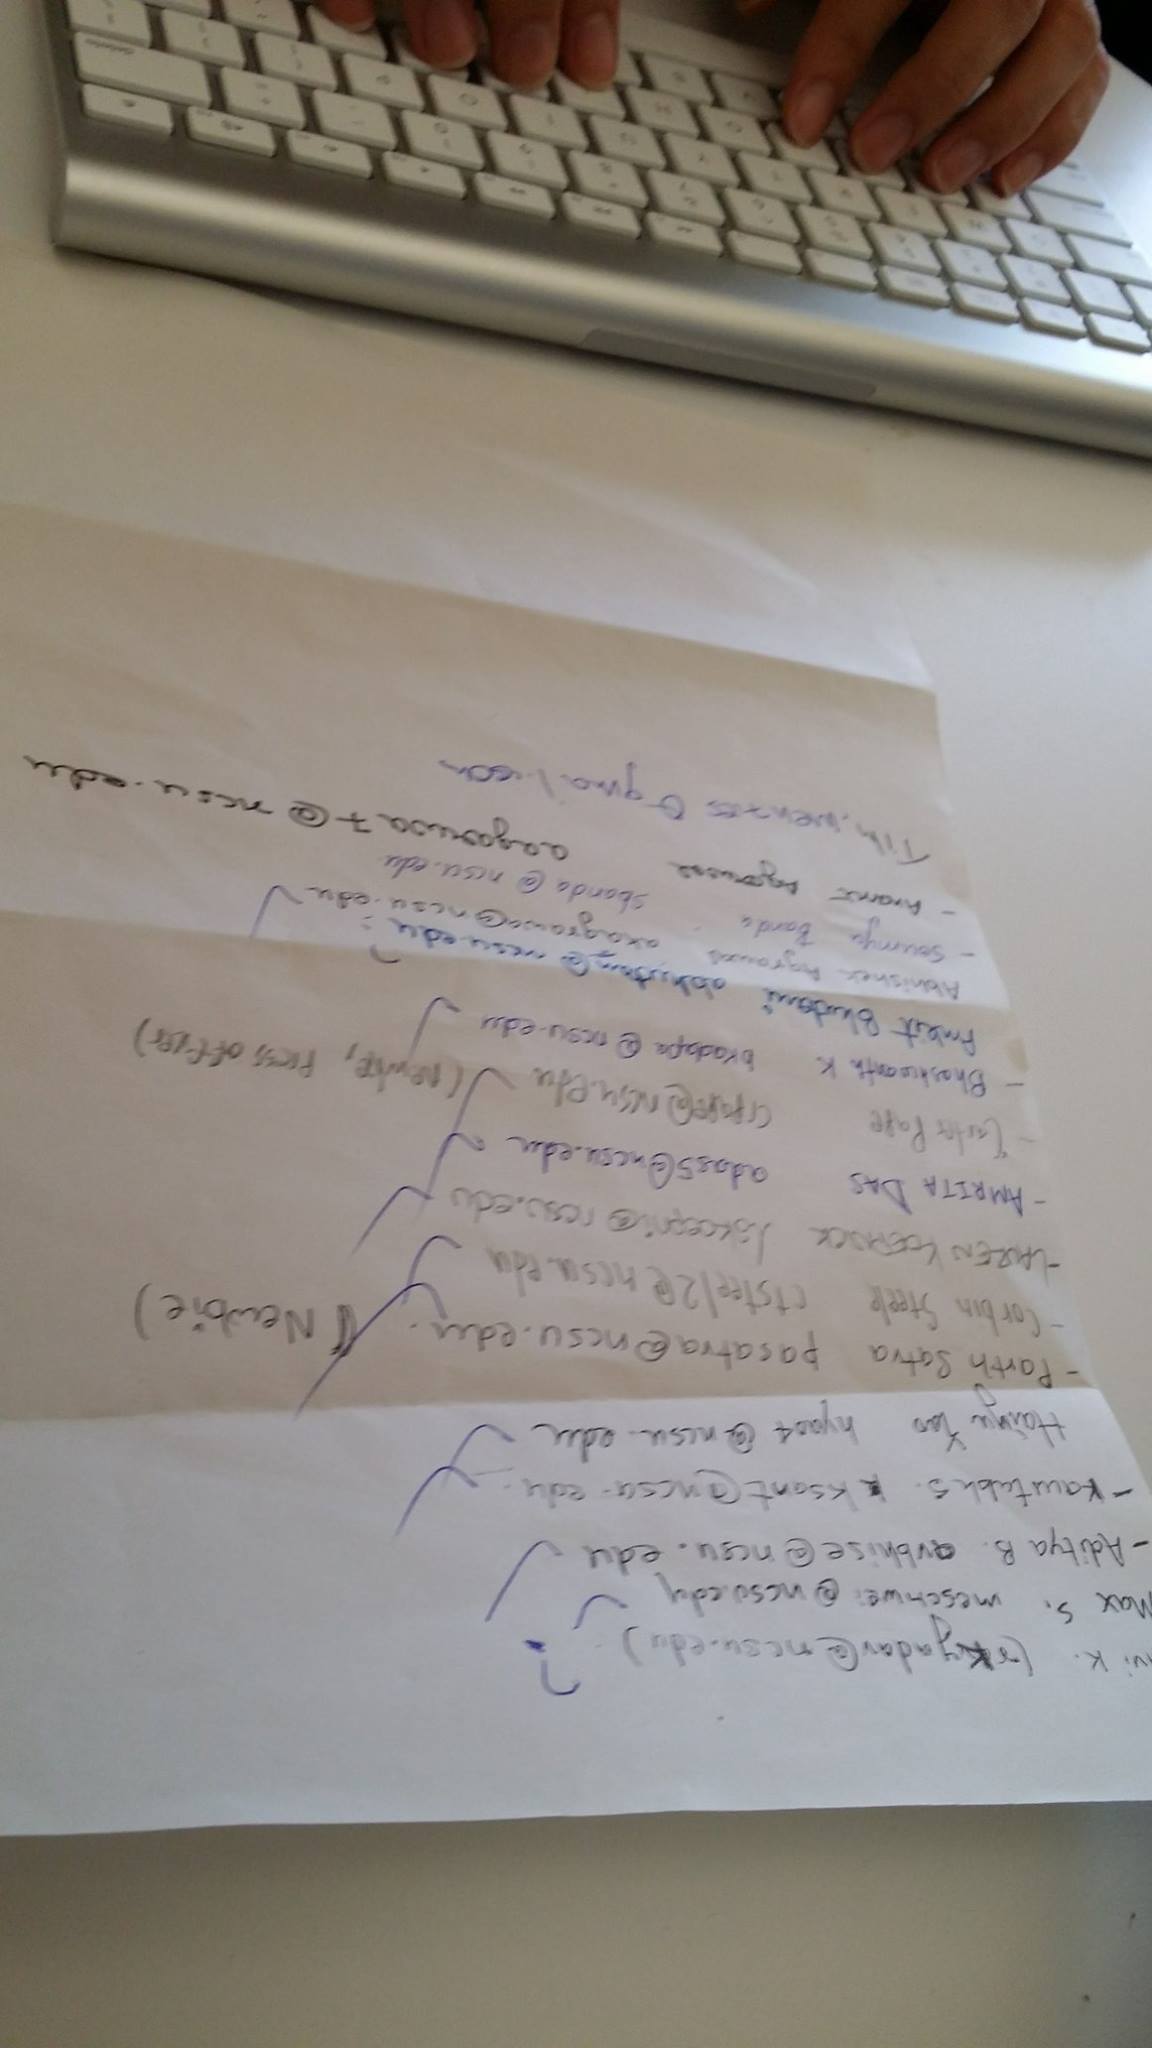 K. (rkyadav@ncsu.edu) ?
Max S. meschwei@ncsu.edu
- Aditya B. avbhise@ncsu.edu
- Kaustubh S. ksant@ncsu.edu
Haiyu Yao hyao4@ncsu.edu
- Parth Satra pasatra@ncsu.edu (Newbie)
- Corbin Steele ctsteel2@ncsu.edu
- LAUREN @ncsu.edu
- AMRITA DAS adas5@ncsu.edu
- Carter Pape crpape@ncsu.edu (Newbie, Press officer)
- Bhaskwanth K bkadapa@ncsu.edu
Ankit Bhutani @ncsu.edu ?
Abhishek Agrawal akagrawa@ncsu.edu
- Soumya Banda sbanda@ncsu.edu
- Anant Agarwal aagarwa7@ncsu.edu
Tim. @gmail.com